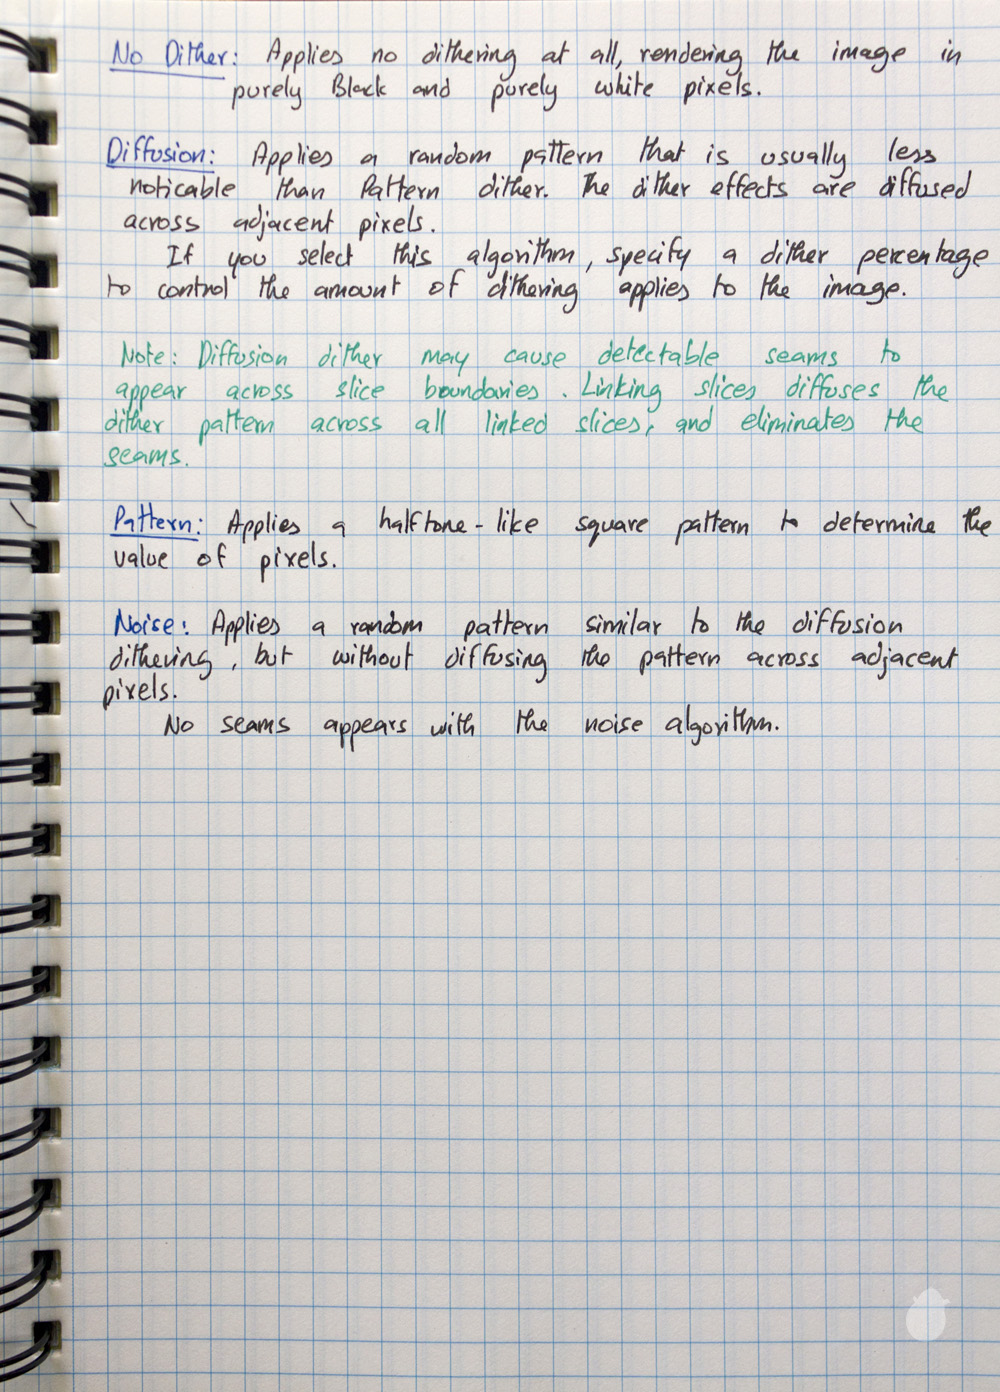 No Dither: Applies no dithering at all, rendering the image in
purely Black and purely white pixels.
Diffusion: Applies a random pattern that is usually less
noticable than Pattern dither. The dither effects are diffused
across adjacent pixels.
If you select this algorithm, specify a dither percentage
to control the amount of dithering applies to the image.
Note: Diffusion dither may cause detectable seams to
appear across slice boundaries. Linking slices diffuses the
dither pattern across all linked slices, and eliminates the
seams.
Pattern: Applies a halftone-like square pattern to determine the
value of pixels.
Noise: Applies a random pattern similar to the diffusion
dithering, but without diffusing the pattern across adjacent
pixels.
No seams appears with the noise algorithm.